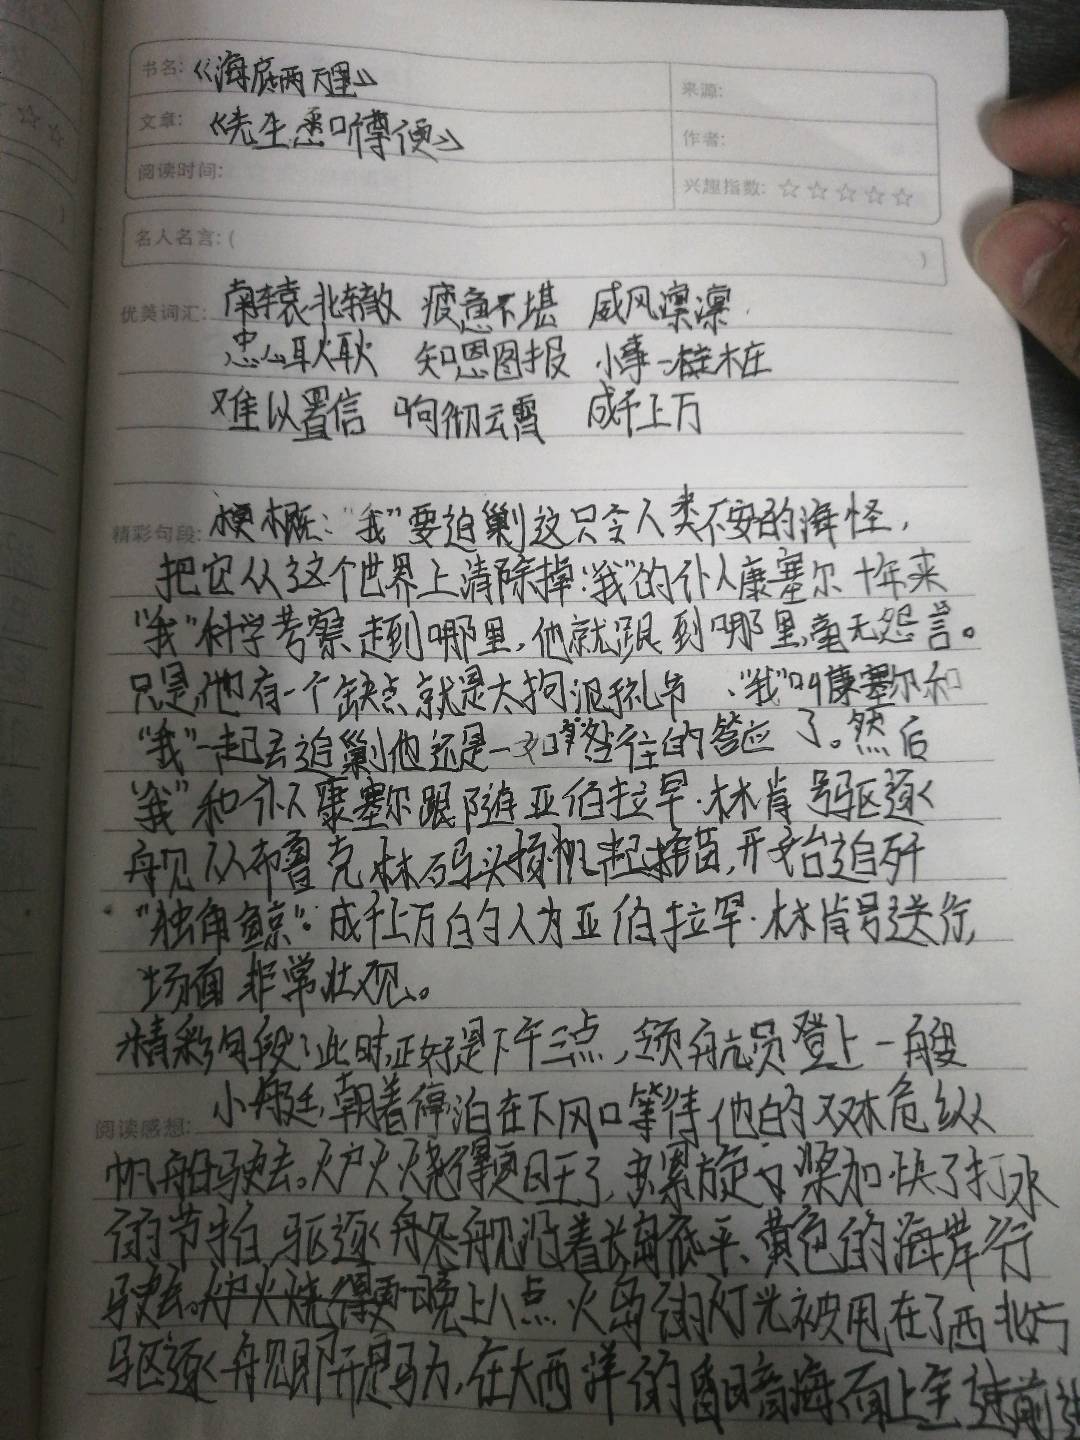 书名:《海底两万里》
来源:
文章:《先生悉听尊便》
作者:
阅读时间:
兴趣指数: ☆☆☆☆☆
名人名言: ( )
优美词汇: 南辕北辙 疲惫不堪 威风凛凛
忠心耿耿 知恩图报 小事一桩
难以置信 响彻云霄 成千上万
精彩句段: 梗概:“我”要追剿这只令人类不安的海怪,
把它从这个世界上清除掉:“我”的仆人康塞尔十年来
“我”科学考察走到哪里,他就跟到哪里,毫无怨言。
只是,他有一个缺点就是太拘泥礼节、“我”叫康塞尔和
“我”一起去追剿他还是一如既往的答应了。然后
“我”和仆人康塞尔跟随亚伯拉罕·林肯号驱逐
舰从布鲁克林码头扬帆起锚,开始追歼
“独角鲸”。成千上万的人为亚伯拉罕·林肯号送行,
场面非常壮观。
精彩句段:此时,正好是下午三点,领航员登上一艘
阅读感想: 小艇,朝着停泊在下风口等待他的双桅纵
帆船驶去。炉火烧得更旺了,螺旋桨加快了打水
的节拍,驱逐舰沿着长岛低平、黄色的海岸行
驶去。晚上八点,火岛的灯光被甩在了西北方
驱逐舰即开足马力,在大西洋的昏暗海面上全速前进